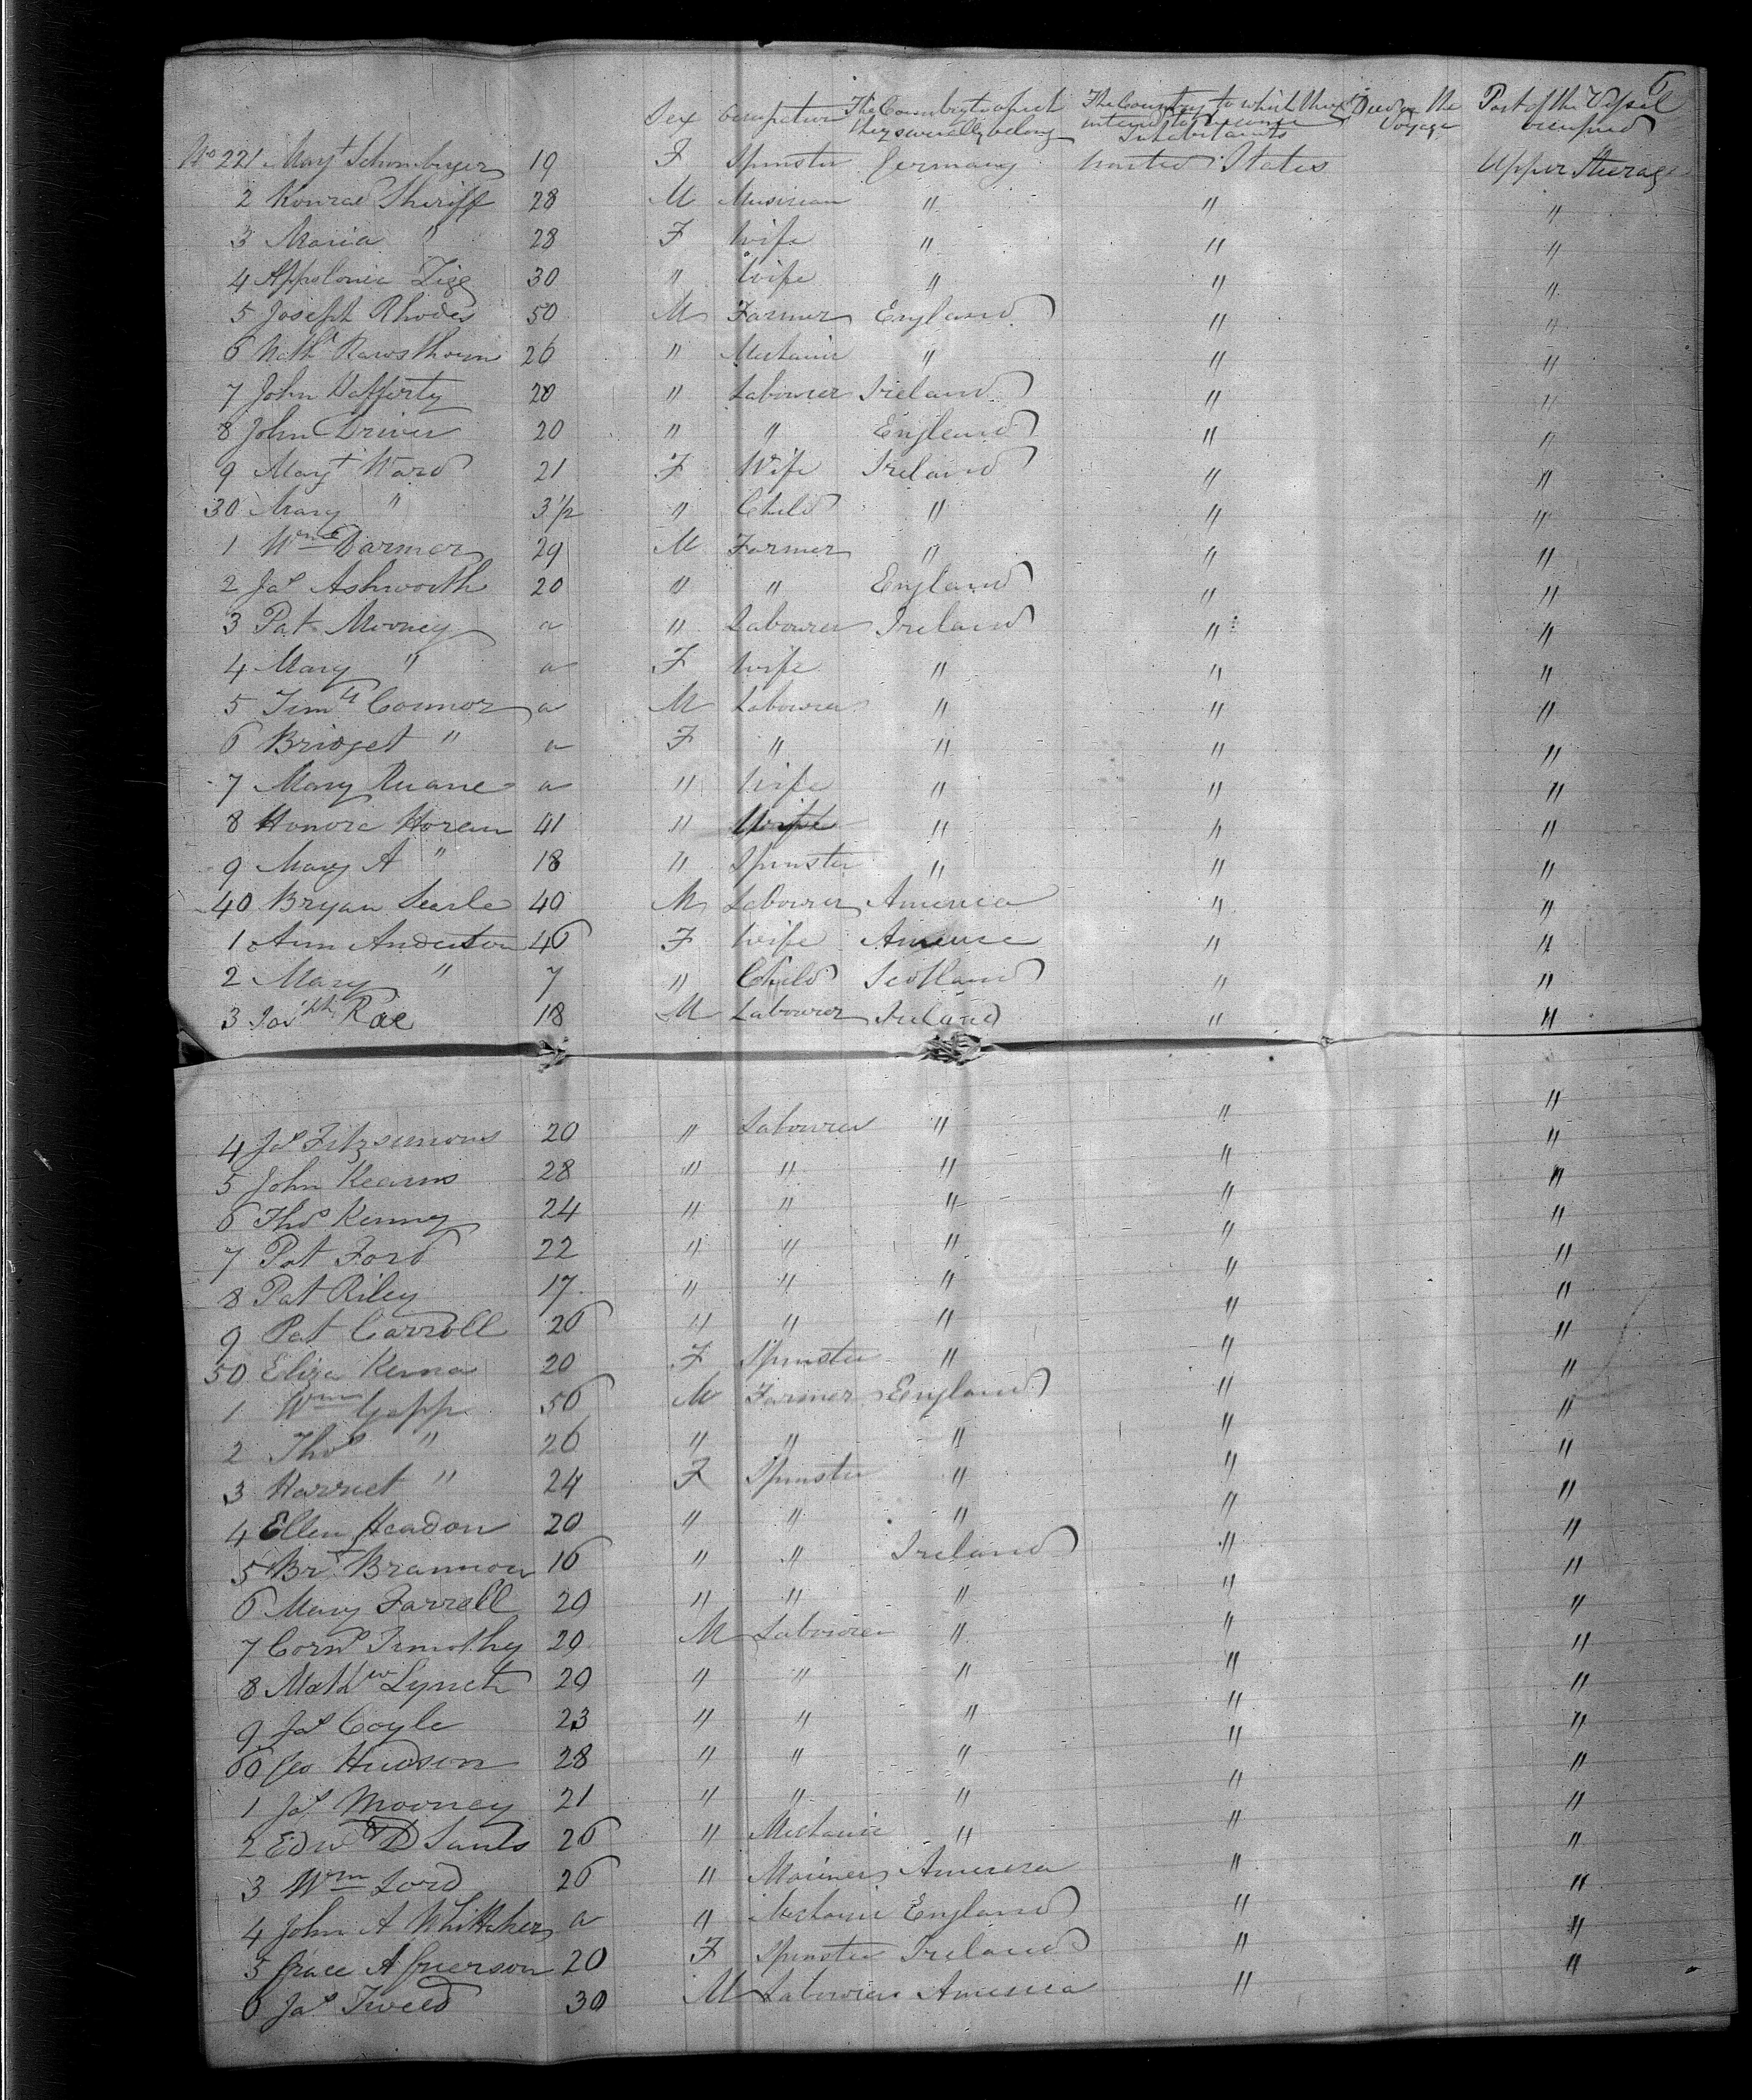 6
Sex Occupation The Country to which they severally belong The Country to which they intend to become Inhabitants Died on the Voyage Part of the Vessel occupied
No 221 Mayt Schomburger 19 F Spinster Germany United States Upper Steerage
2 Konrad Sheriff 28 M Musician " " "
3 Maria " 28 F Wife " " "
4 Appolonia 30 " Wife " " "
5 Joseph Rhodes 50 M Farmer England " "
6 Nathl Rawsthorn 26 " Mechanic " " "
7 John Hafferty 20 " Labourer Ireland " "
8 John Driver 20 " " England " "
9 Mayt Ward 21 F Wife Ireland " "
30 Mary " 3 1/2 " Child " " "
1 Wm Darmer 29 M Farmer " " "
2 Jas Ashworth 20 " " England " "
3 Pat Mooney a " Labourer Ireland " "
4 Mary " a F Wife " " "
5 Timy Connor a M Labourer " " "
6 Bridget " a F " " " "
7 Mary Ruane a " Wife " " "
8 Honora Horan 41 " Wife " " "
9 Mary A " 18 " Spinster " " "
40 Bryan Searle 40 M Labourer America " "
1 Ann Anderton 46 F Wife America " "
2 Mary " 7 " Child Scotland " "
3 Josph Rae 18 M Labourer Ireland " "
4 Jas Fitzsimons 20 " Labourer " " "
5 John Kearns 28 " " " " "
6 Thos Kenny 24 " " " " "
7 Pat Ford 22 " " " " "
8 Pat Riley 17 " " " " "
9 Pat Carroll 26 " " " " "
50 Eliza Kerna 20 F Spinster " " "
1 Wm Gapp 56 M Farmer England " "
2 Thos " 26 " " " " "
3 Harriet " 24 F Spinster " " "
4 Ellen Headon 20 " " " " "
5 Brt Brannon 16 " " Ireland " "
6 Mary Farrell 20 " " " " "
7 Corns Timothy 20 M Labourer " " "
8 Mathw Lynch 20 " " " " "
9 Jas Coyle 23 " " " " "
60 Geo Hudson 28 " " " " "
1 Jas Mooney 21 " " " " "
2 Edwd D Sants 26 " Mechanic " " "
3 Wm Lord 26 " Mariner America " "
4 John A Whittaker a " Mechanic England " "
5 Grace A Grierson 20 F Spinster Ireland " "
6 Jas Tweed 30 M Labourer America " "